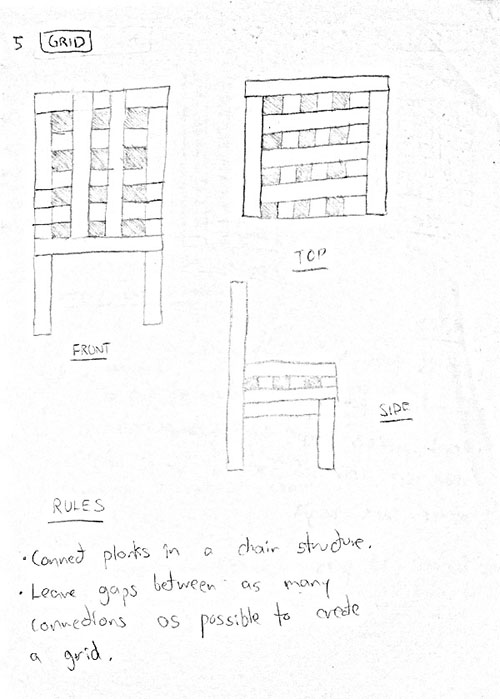 5 GRID
TOP
FRONT
SIDE
RULES
• Connect planks in a chair structure.
• Leave gaps between as many
connections as possible to create
a grid.